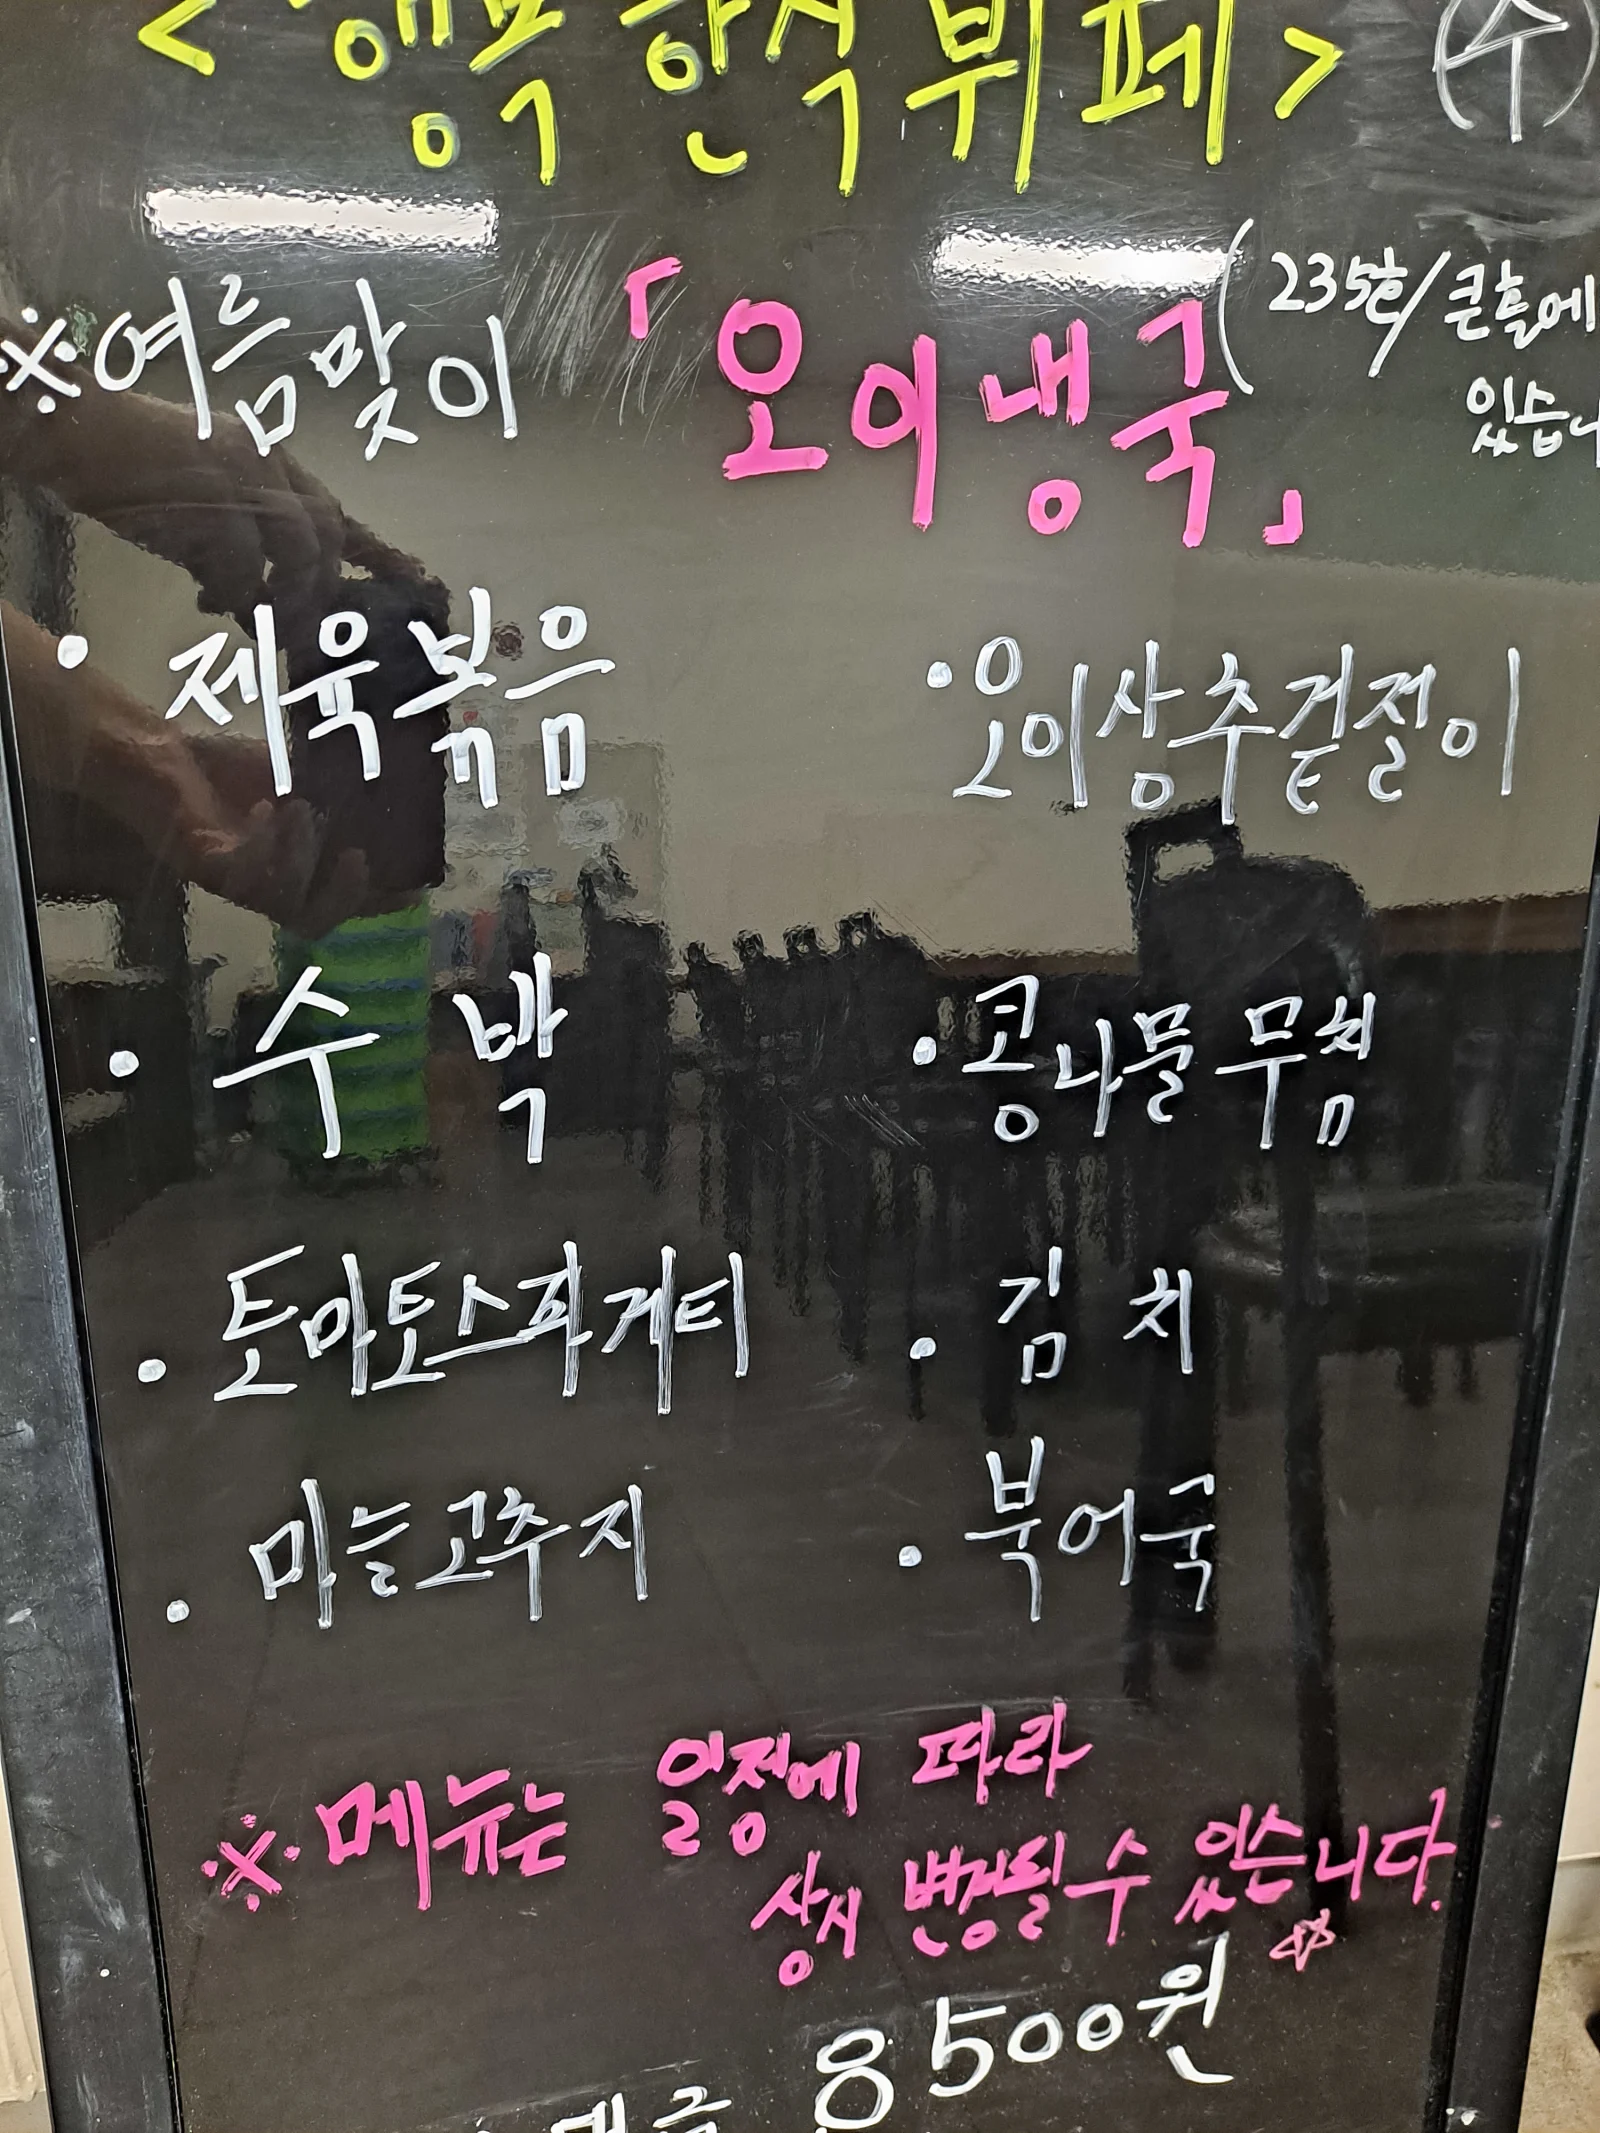 <행복 한식 뷔페> (수)
※여름맞이 「오이냉국」 (235호/큰홀에
있습니
· 제육볶음 · 오이상추겉절이
· 수박 · 콩나물 무침
· 토마토스파게티 · 김치
· 마늘고추지 · 북어국
※메뉴는 일정에 따라
상시 변경될 수 있습니다.
8500원